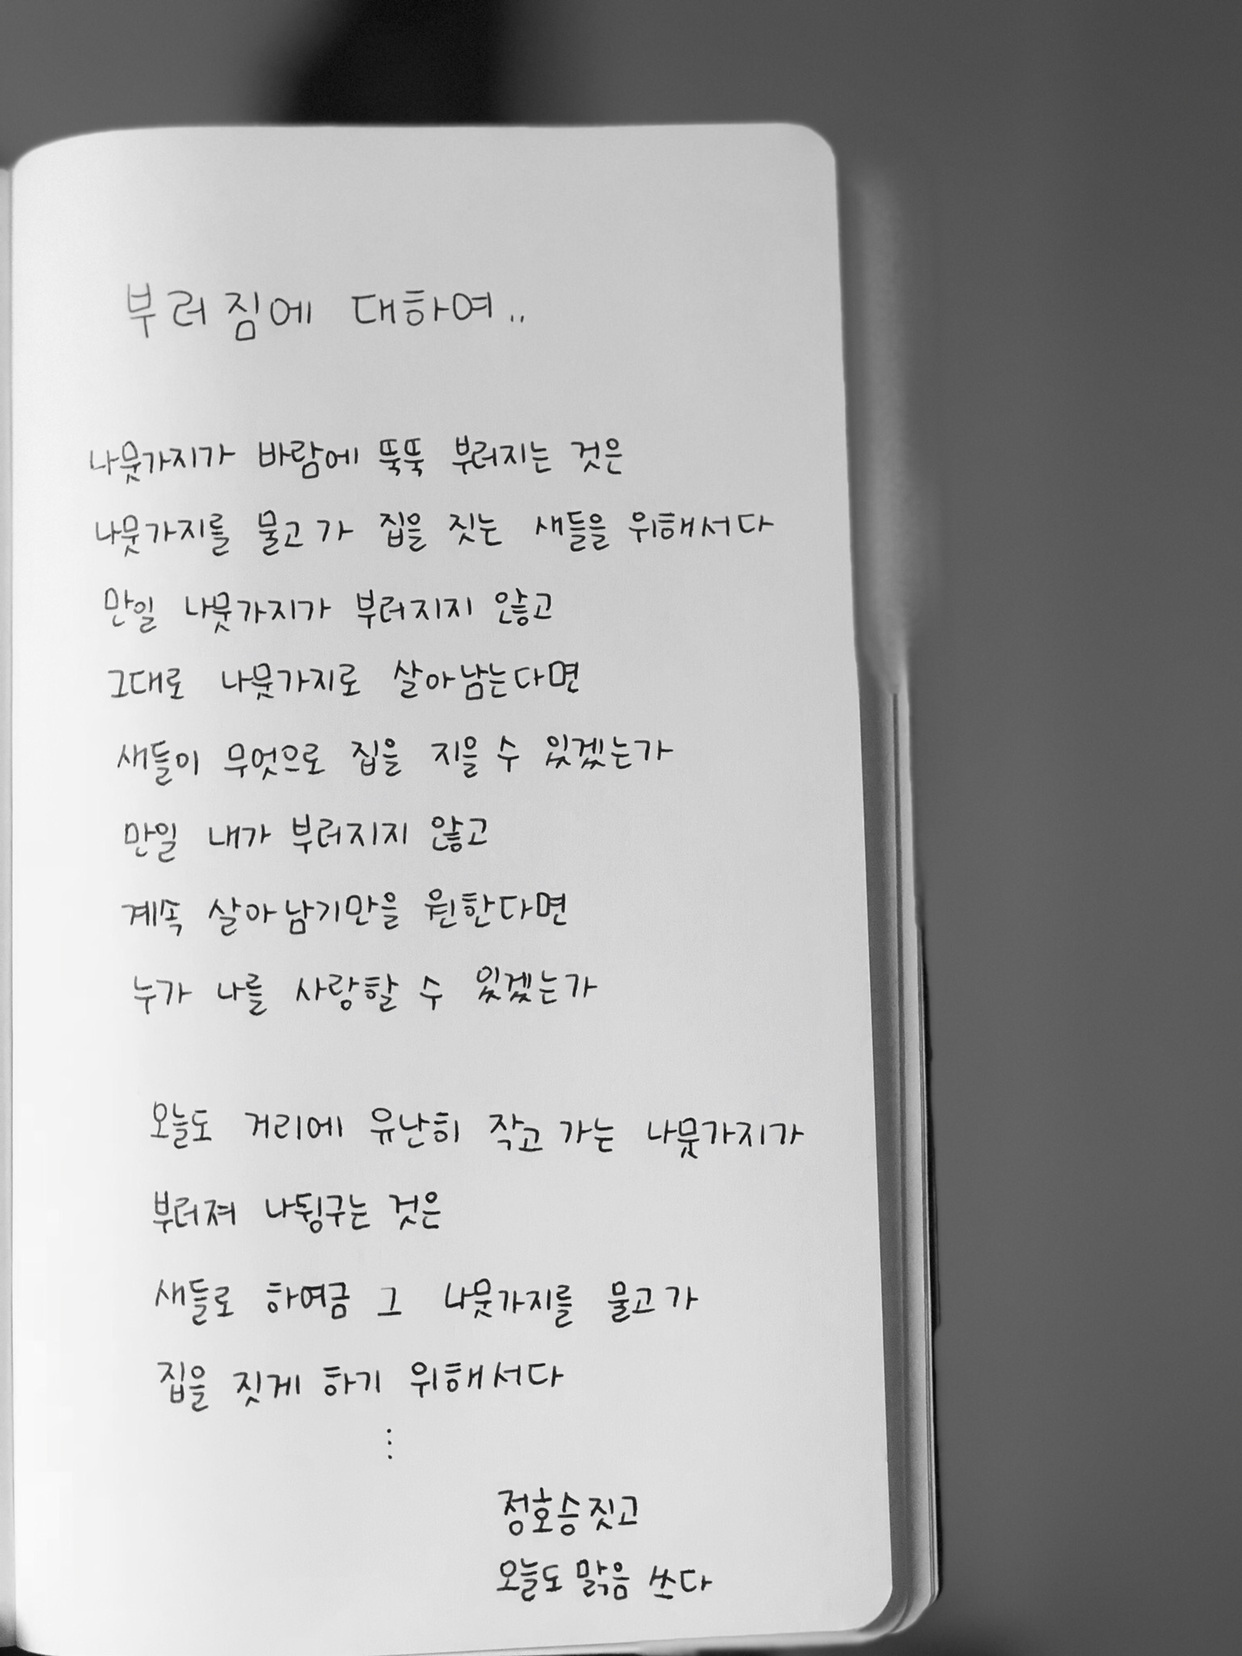 부러짐에 대하여..
나뭇가지가 바람에 뚝뚝 부러지는 것은
나뭇가지를 물고 가 집을 짓는 새들을 위해서다
만일 나뭇가지가 부러지지 않고
그대로 나뭇가지로 살아남는다면
새들이 무엇으로 집을 지을 수 있겠는가
만일 내가 부러지지 않고
계속 살아남기만을 원한다면
누가 나를 사랑할 수 있겠는가
오늘도 거리에 유난히 작고 가는 나뭇가지가
부러져 나뒹구는 것은
새들로 하여금 그 나뭇가지를 물고 가
집을 짓게 하기 위해서다
⋮
정호승 짓고
오늘도 맑음 쓰다